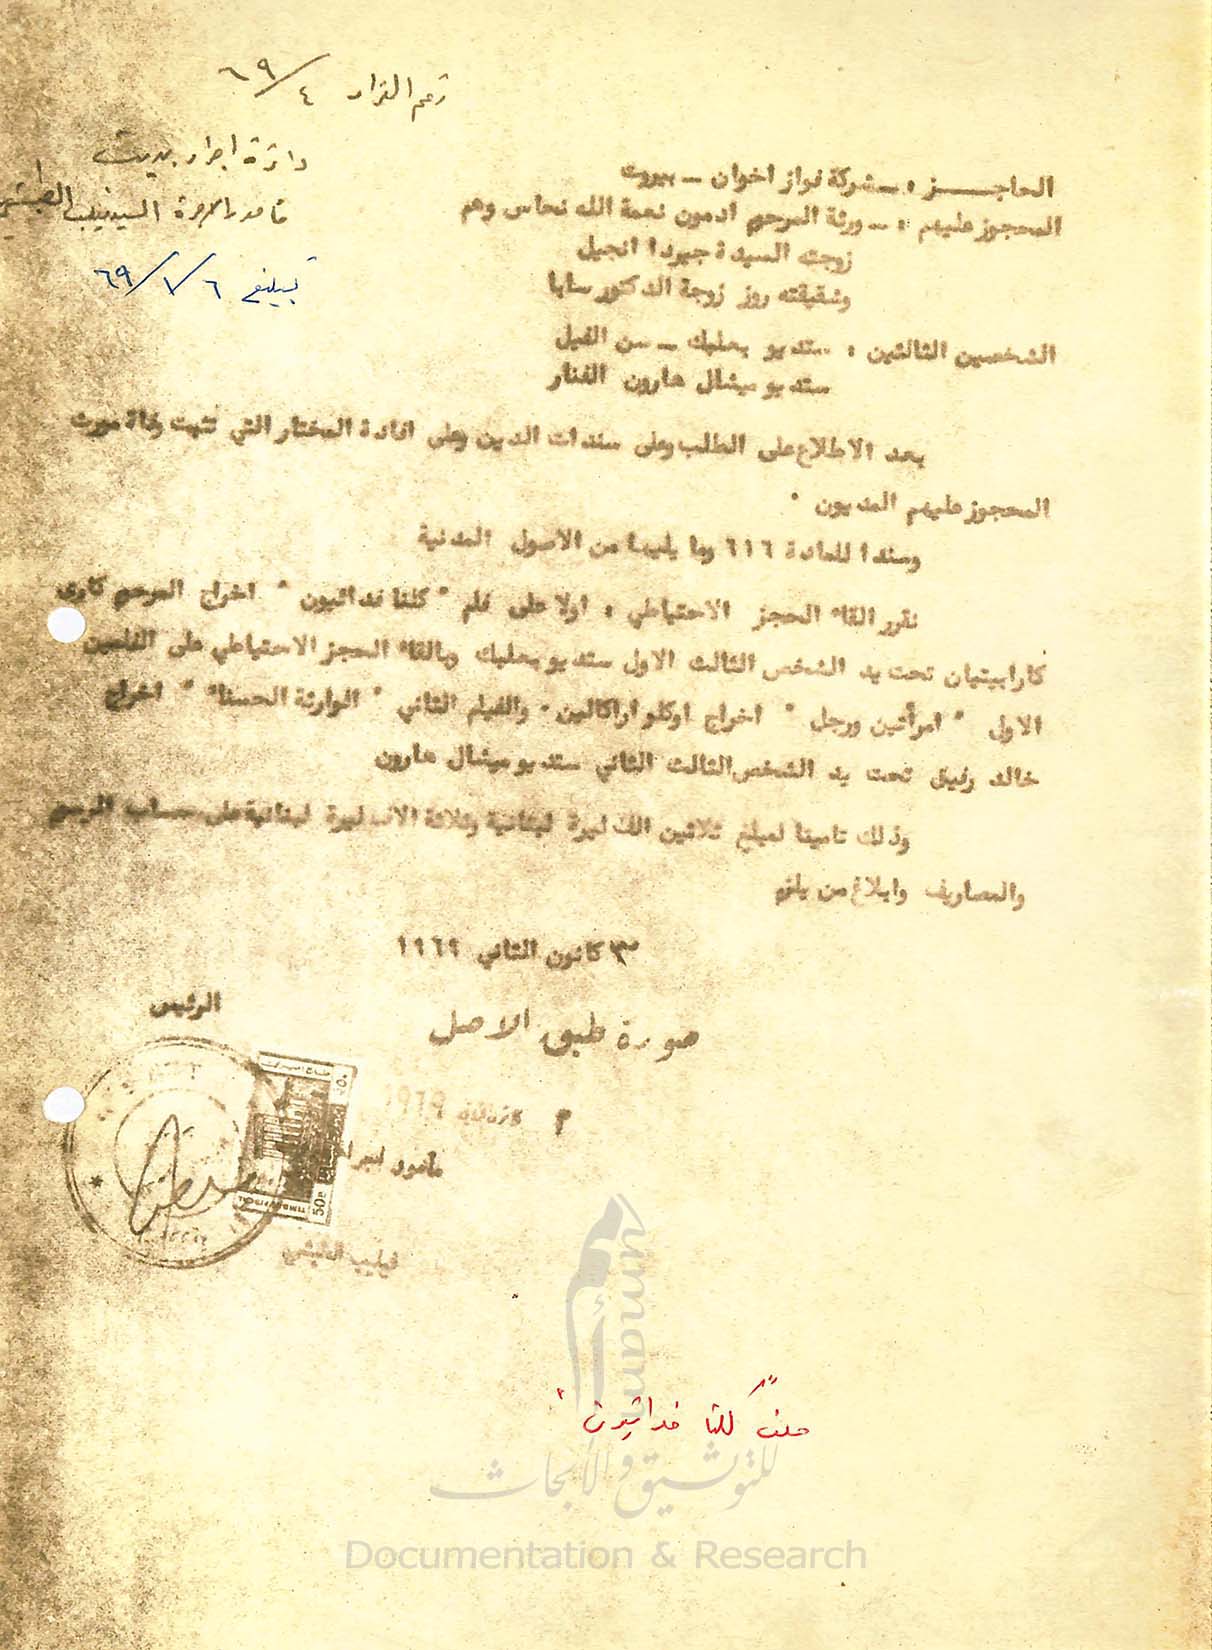 رقم القرار ٦٩/٤
دائرة اجراء بيروت
مأمور الاجراء السيد فيليب
تبليغ ٦٩/١/٦
الحاجــــز : ــ شركة فواز اخوان ــ بيروت
المحجوز عليهم : ــ ورثة المرحوم ادمون نعمة الله نحاس وهم
زوجته السيدة جيردا انجيل
وشقيقته روز زوجة الدكتور سابا
الشخصين الثالثين : ستديو بعلبك ــ سن الفيل
ستديو ميشال هارون الفنار
بعد الاطلاع على الطلب وعلى سندات الدين وعلى افادة المختار التي تثبت وفاة مورث
المحجوز عليهم المديون ٠
وسندا للمادة ٦١٦ وما يليها من الاصول المدنية
نقرر القاء الحجز الاحتياطي : اولا على فلم " كلنا فدائيون " اخراج المرحوم كاري
كارابيتيان تحت يد الشخص الثالث الاول ستديو بعلبك وبالقاء الحجز الاحتياطي على الفلمين
الاول " امرأتين ورجل " اخراج اوكلو اراكالين ٠ والفيلم الثاني " الوارثة الحسناء " اخراج
خالد رفيق تحت يد الشخص الثالث الثاني ستديو ميشال هارون
وذلك تامينا لمبلغ ثلاثين الف ليرة لبنانية وثلاثة الاف ليرة لبنانية على حساب الرسوم
والمصاريف وابلاغ من يلزم
٣ كانون الثاني ١٩٦٩
الرئيس
صورة طبق الاصل
١٩٦٩
مأمور اجراء
50P
فيليب
ملف " كلنا فدائيون "
umam
أمم
للتوثيق والأبحاث
Documentation & Research